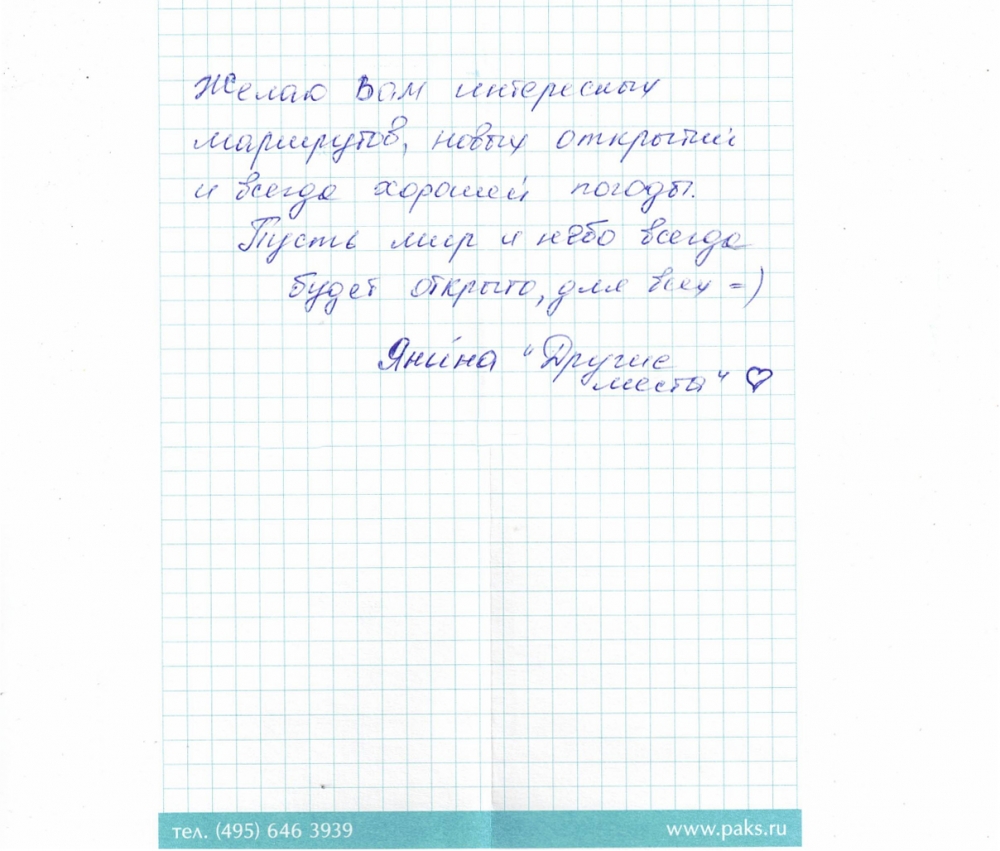 Желаю Вам интересных
маршрутов, новых открытий
и всегда хорошей погоды.
Пусть мир и небо всегда
будет открыто, для всех =)
Янина "Другие
места" ♡
тел. (495) 646 3939
www.paks.ru